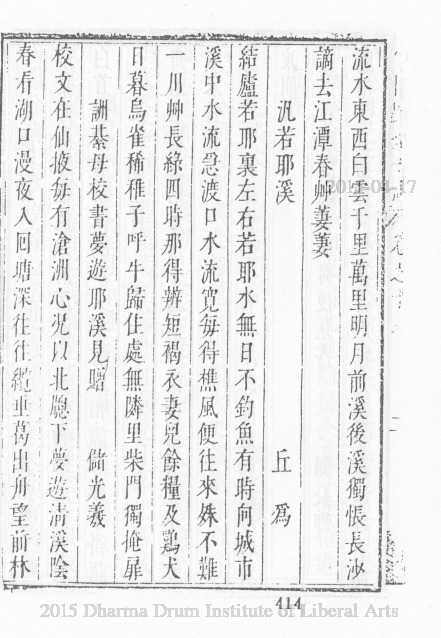 流水東西白雲千里萬里明月前溪後溪獨悵長沙
謫去江潭春艸萋萋
汎若耶溪 丘為
結廬若耶裏左右若耶水無日不釣魚有時向城市
溪中水流急渡口水流寬每得樵風便往來殊不難
一川艸長綠四時那得辨短褐衣妻兒餘糧及鷄犬
日暮烏雀稀稚子呼牛歸住處無隣里柴門獨掩扉
詶綦母校書夢遊耶溪見贈 儲光羲
校文在仙掖每有滄洲心况以北牕下夢遊清溪陰
春看湖口漫夜入囘塘深往往纜垂葛出舟望前林
2015-04-17
414
2015 Dharma Drum Institute of Liberal Arts